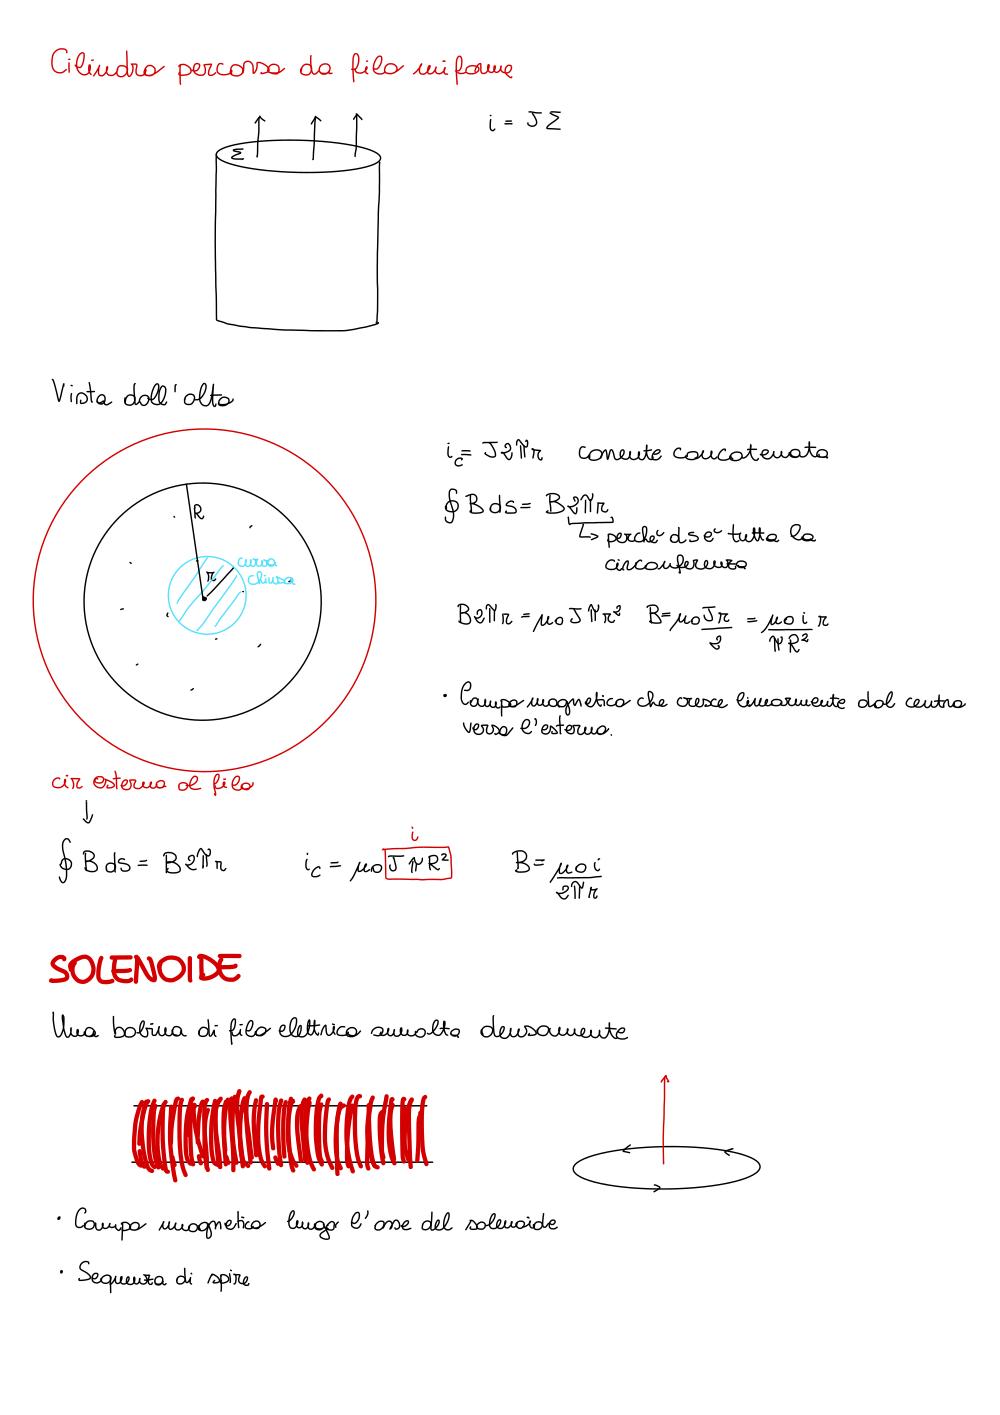 Cilindro percorso da filo uniforme
i = JΣ
Σ
Vista dall'alto
R
r
curva
chiusa
i_c = J2πr corrente concatenata
∮ B ds = B2πr
↳ perchè ds e' tutta la
circonferenza
B2πr = μ₀ J πr² B = μ₀ Jr/2 = μ₀ i/πR² r
· Campo magnetico che cresce linearmente dal centro
verso l'esterno.
cir esterna al filo
↓
∮ B ds = B2πr i_c = μ₀ J πR² B = μ₀ i/2πr
i
SOLENOIDE
Una bobina di filo elettrico avvolta densamente
· Campo magnetico lungo l'asse del solenoide
· Sequenza di spire